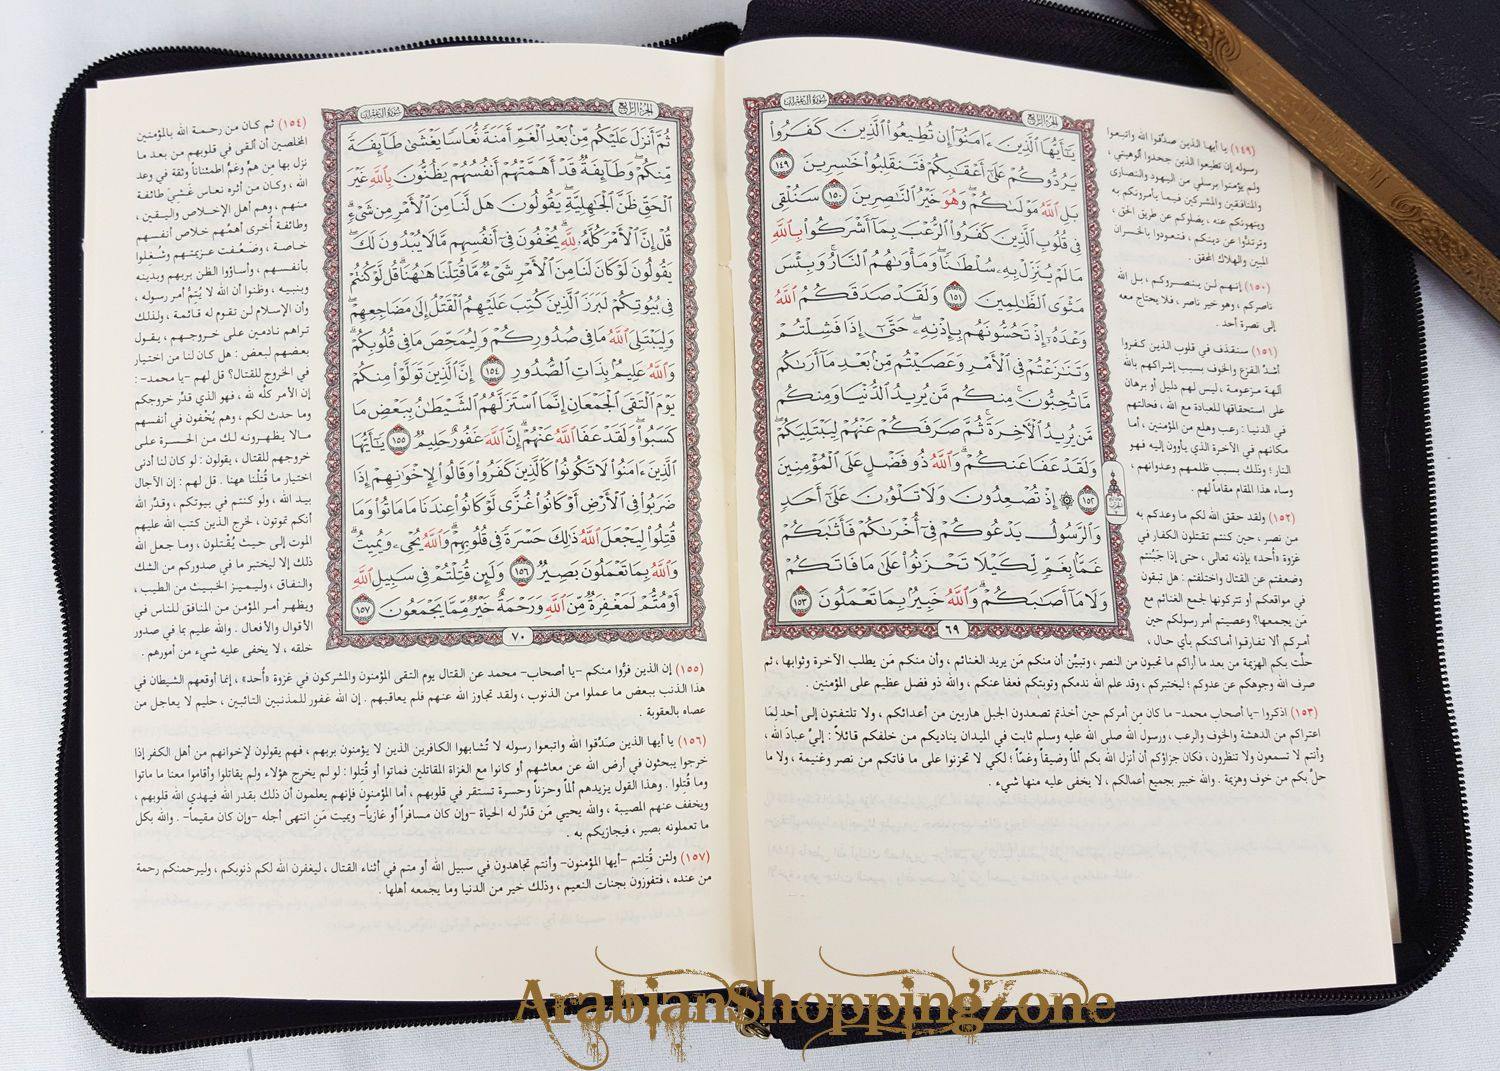 سورة آل عمران
الجزء الرابع
يَٰٓأَيُّهَا ٱلَّذِينَ ءَامَنُوٓاْ إِن تُطِيعُواْ ٱلَّذِينَ كَفَرُواْ
يَرُدُّوكُمْ عَلَىٰٓ أَعْقَٰبِكُمْ فَتَنقَلِبُواْ خَٰسِرِينَ ١٤٩
بَلِ ٱللَّهُ مَوْلَىٰكُمْ وَهُوَ خَيْرُ ٱلنَّٰصِرِينَ ١٥٠ سَنُلْقِي
فِي قُلُوبِ ٱلَّذِينَ كَفَرُواْ ٱلرُّعْبَ بِمَآ أَشْرَكُواْ بِٱللَّهِ
مَا لَمْ يُنَزِّلْ بِهِۦ سُلْطَٰنًا وَمَأْوَىٰهُمُ ٱلنَّارُ وَبِئْسَ
مَثْوَى ٱلظَّٰلِمِينَ ١٥١ وَلَقَدْ صَدَقَكُمُ ٱللَّهُ
وَعْدَهُۥٓ إِذْ تَحُسُّونَهُم بِإِذْنِهِۦ حَتَّىٰٓ إِذَا فَشِلْتُمْ
وَتَنَٰزَعْتُمْ فِي ٱلْأَمْرِ وَعَصَيْتُم مِّنۢ بَعْدِ مَآ أَرَىٰكُم
مَّا تُحِبُّونَ مِنكُم مَّن يُرِيدُ ٱلدُّنْيَا وَمِنكُم
مَّن يُرِيدُ ٱلْأٓخِرَةَ ثُمَّ صَرَفَكُمْ عَنْهُمْ لِيَبْتَلِيَكُمْ
وَلَقَدْ عَفَا عَنكُمْ وَٱللَّهُ ذُو فَضْلٍ عَلَى ٱلْمُؤْمِنِينَ
١٥٢ ۞ إِذْ تُصْعِدُونَ وَلَا تَلْوُۥنَ عَلَىٰٓ أَحَدٍ
وَٱلرَّسُولُ يَدْعُوكُمْ فِيٓ أُخْرَىٰكُمْ فَأَثَٰبَكُمْ
غَمَّۢا بِغَمٍّ لِّكَيْلَا تَحْزَنُواْ عَلَىٰ مَا فَاتَكُمْ
وَلَا مَآ أَصَٰبَكُمْ وَٱللَّهُ خَبِيرٌۢ بِمَا تَعْمَلُونَ ١٥٣
٦٩
(١٤٩) يا أيها الذين صدَّقوا الله واتبعوا
رسوله إن تطيعوا الذين جحدوا ألوهيتي ،
ولم يؤمنوا برسلي من اليهود والنصارى
والمنافقين والمشركين فيما يأمرونكم به
وينهونكم عنه ، يضلوكم عن طريق الحق ،
وترتدُّوا عن دينكم ، فتعودوا بالخسران
المبين والهلاك المحقق .
(١٥٠) إنهم لن ينصروكم ، بل الله
ناصركم ، وهو خير ناصر ، فلا يحتاج معه
إلى نصرة أحد .
(١٥١) سنقذف في قلوب الذين كفروا
أشدَّ الفزع والخوف بسبب إشراكهم بالله
آلهة مزعومة ، ليس لهم دليل أو برهان
على استحقاقها للعبادة مع الله ، فحالتهم
في الدنيا : رعب وهلع من المؤمنين ، أما
مكانهم في الآخرة الذي يأوون إليه فهو
النار ؛ وذلك بسبب ظلمهم وعدوانهم ،
وساء هذا المقام مقاماً لهم .
(١٥٢) ولقد حقق الله لكم ما وعدكم به
من نصر ، حين كنتم تقتلون الكفار في
غزوة «أُحد» بإذنه تعالى ، حتى إذا جَبُنتم
وضعفتم عن القتال واختلفتم : هل تبقون
في مواقعكم أو تتركونها لجمع الغنائم مع
مَن يجمعها؟ وعصيتم أمر رسولكم حين
أمركم ألا تفارقوا أماكنكم بأي حال ،
حلَّت بكم الهزيمة من بعد ما أراكم ما تحبون من النصر ، وتبيَّن أن منكم مَن يريد الغنائم ، وأن منكم مَن يطلب الآخرة وثوابها ، ثم
صرف الله وجوهكم عن عدوكم ؛ ليختبركم ، وقد علم الله ندمكم وتوبتكم فعفا عنكم ، والله ذو فضل عظيم على المؤمنين .
(١٥٣) اذكروا -يا أصحاب محمد- ما كان من أمركم حين أخذتم تصعدون الجبل هاربين من أعدائكم ، ولا تلتفتون إلى أحد لِمَا
اعتراكم من الدهشة والخوف والرعب ، ورسول الله صلى الله عليه وسلم ثابت في الميدان يناديكم من خلفكم قائلاً : إليَّ عبادَ الله ،
وأنتم لا تسمعون ولا تنظرون ، فكان جزاؤكم أن أنزل الله بكم ألماً وضيقاً وغمّاً ؛ لكي لا تحزنوا على ما فاتكم من نصر وغنيمة ، ولا ما
حلَّ بكم من خوف وهزيمة . والله خبير بجميع أعمالكم ، لا يخفى عليه منها شيء .
الجزء الرابع
سورة آل عمران
ثُمَّ أَنزَلَ عَلَيْكُم مِّنۢ بَعْدِ ٱلْغَمِّ أَمَنَةً نُّعَاسًا يَغْشَىٰ طَآئِفَةً
مِّنكُمْ وَطَآئِفَةٌ قَدْ أَهَمَّتْهُمْ أَنفُسُهُمْ يَظُنُّونَ بِٱللَّهِ غَيْرَ
ٱلْحَقِّ ظَنَّ ٱلْجَٰهِلِيَّةِ يَقُولُونَ هَل لَّنَا مِنَ ٱلْأَمْرِ مِن شَيْءٍ
قُلْ إِنَّ ٱلْأَمْرَ كُلَّهُۥ لِلَّهِ يُخْفُونَ فِيٓ أَنفُسِهِم مَّا لَا يُبْدُونَ لَكَ
يَقُولُونَ لَوْ كَانَ لَنَا مِنَ ٱلْأَمْرِ شَيْءٌ مَّا قُتِلْنَا هَٰهُنَا قُل لَّوْ كُنتُمْ
فِي بُيُوتِكُمْ لَبَرَزَ ٱلَّذِينَ كُتِبَ عَلَيْهِمُ ٱلْقَتْلُ إِلَىٰ مَضَاجِعِهِمْ
وَلِيَبْتَلِيَ ٱللَّهُ مَا فِي صُدُورِكُمْ وَلِيُمَحِّصَ مَا فِي قُلُوبِكُمْ
وَٱللَّهُ عَلِيمٌۢ بِذَاتِ ٱلصُّدُورِ ١٥٤ إِنَّ ٱلَّذِينَ تَوَلَّوْاْ مِنكُمْ
يَوْمَ ٱلْتَقَى ٱلْجَمْعَانِ إِنَّمَا ٱسْتَزَلَّهُمُ ٱلشَّيْطَٰنُ بِبَعْضِ مَا
كَسَبُواْ وَلَقَدْ عَفَا ٱللَّهُ عَنْهُمْ إِنَّ ٱللَّهَ غَفُورٌ حَلِيمٌ ١٥٥ يَٰٓأَيُّهَا
ٱلَّذِينَ ءَامَنُواْ لَا تَكُونُواْ كَٱلَّذِينَ كَفَرُواْ وَقَالُواْ لِإِخْوَٰنِهِمْ إِذَا
ضَرَبُواْ فِي ٱلْأَرْضِ أَوْ كَانُواْ غُزًّى لَّوْ كَانُواْ عِندَنَا مَا مَاتُواْ وَمَا
قُتِلُواْ لِيَجْعَلَ ٱللَّهُ ذَٰلِكَ حَسْرَةً فِي قُلُوبِهِمْ وَٱللَّهُ يُحْيِۦ وَيُمِيتُ
وَٱللَّهُ بِمَا تَعْمَلُونَ بَصِيرٌ ١٥٦ وَلَئِن قُتِلْتُمْ فِي سَبِيلِ ٱللَّهِ
أَوْ مُتُّمْ لَمَغْفِرَةٌ مِّنَ ٱللَّهِ وَرَحْمَةٌ خَيْرٌ مِّمَّا يَجْمَعُونَ ١٥٧
٧٠
(١٥٤) ثم كان من رحمة الله بالمؤمنين
المخلصين أن ألقى في قلوبهم من بعد ما
نزل بها من همٍّ وغمٍّ اطمئناناً وثقة في وعد
الله ، وكان من أثره نعاس غَشِيَ طائفة
منهم ، وهم أهل الإخلاص واليقين ،
وطائفة أُخرى أهمَّهم خلاص أنفسهم
خاصة ، وضَعُفت عزيمتهم وشُغلوا
بأنفسهم ، وأساؤوا الظن بربهم وبدينه
وبنبيه ، وظنوا أن الله لا يُتِمُّ أمر رسوله ،
وأن الإسلام لن تقوم له قائمة ، ولذلك
تراهم نادمين على خروجهم ، يقول
بعضهم لبعض : هل كان لنا من اختيار
في الخروج للقتال؟ قل لهم -يا محمد- :
إن الأمر كلَّه لله ، فهو الذي قدَّر خروجكم
وما حدث لكم ، وهم يُخْفون في أنفسهم
مالا يظهرونه لك من الحسرة على
خروجهم للقتال ، يقولون : لو كان لنا أدنى
اختيار ما قُتلْنا ههنا . قل لهم : إن الآجال
بيد الله ، ولو كنتم في بيوتكم ، وقدَّر الله
أنكم تموتون ، لخرج الذين كتب الله عليهم
الموت إلى حيث يُقْتلون ، وما جعل الله
ذلك إلا ليختبر ما في صدوركم من الشك
والنفاق ، وليميز الخبيث من الطيب ،
ويظهر أمر المؤمن من المنافق للناس في
الأقوال والأفعال . والله عليم بما في صدور
خلقه ، لا يخفى عليه شيء من أمورهم .
(١٥٥) إن الذين فرُّوا منكم -يا أصحاب- محمد عن القتال يوم التقى المؤمنون والمشركون في غزوة «أُحد» ، إنما أوقعهم الشيطان في
هذا الذنب ببعض ما عملوا من الذنوب ، ولقد تجاوز الله عنهم فلم يعاقبهم . إن الله غفور للمذنبين التائبين ، حليم لا يعاجل من
عصاه بالعقوبة .
(١٥٦) يا أيها الذين صَدَّقوا الله واتبعوا رسوله لا تُشابهوا الكافرين الذين لا يؤمنون بربهم ، فهم يقولون لإخوانهم من أهل الكفر إذا
خرجوا يبحثون في أرض الله عن معاشهم أو كانوا مع الغزاة المقاتلين فماتوا أو قُتلوا : لو لم يخرج هؤلاء ولم يقاتلوا وأقاموا معنا ما ماتوا
وما قُتلوا . وهذا القول يزيدهم ألماً وحزناً وحسرة تستقر في قلوبهم ، أما المؤمنون فإنهم يعلمون أن ذلك بقدر الله فيهدي الله قلوبهم ،
ويخفف عنهم المصيبة ، والله يحيي مَن قدَّر له الحياة -وإن كان مسافراً أو غازياً- ويميت مَن انتهى أجله -وإن كان مقيماً- . والله بكل
ما تعملونه بصير ، فيجازيكم به .
(١٥٧) ولئن قُتلتم -أيها المؤمنون- وأنتم تجاهدون في سبيل الله أو متم في أثناء القتال ، ليغفرن الله لكم ذنوبكم ، وليرحمنكم رحمة
من عنده ، فتفوزون بجنات النعيم ، وذلك خير من الدنيا وما يجمعه أهلها .
ArabianShoppingZone